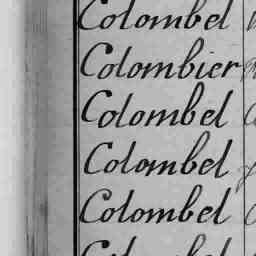 Colombel
Colombier
Colombel
Colombel
Colombel